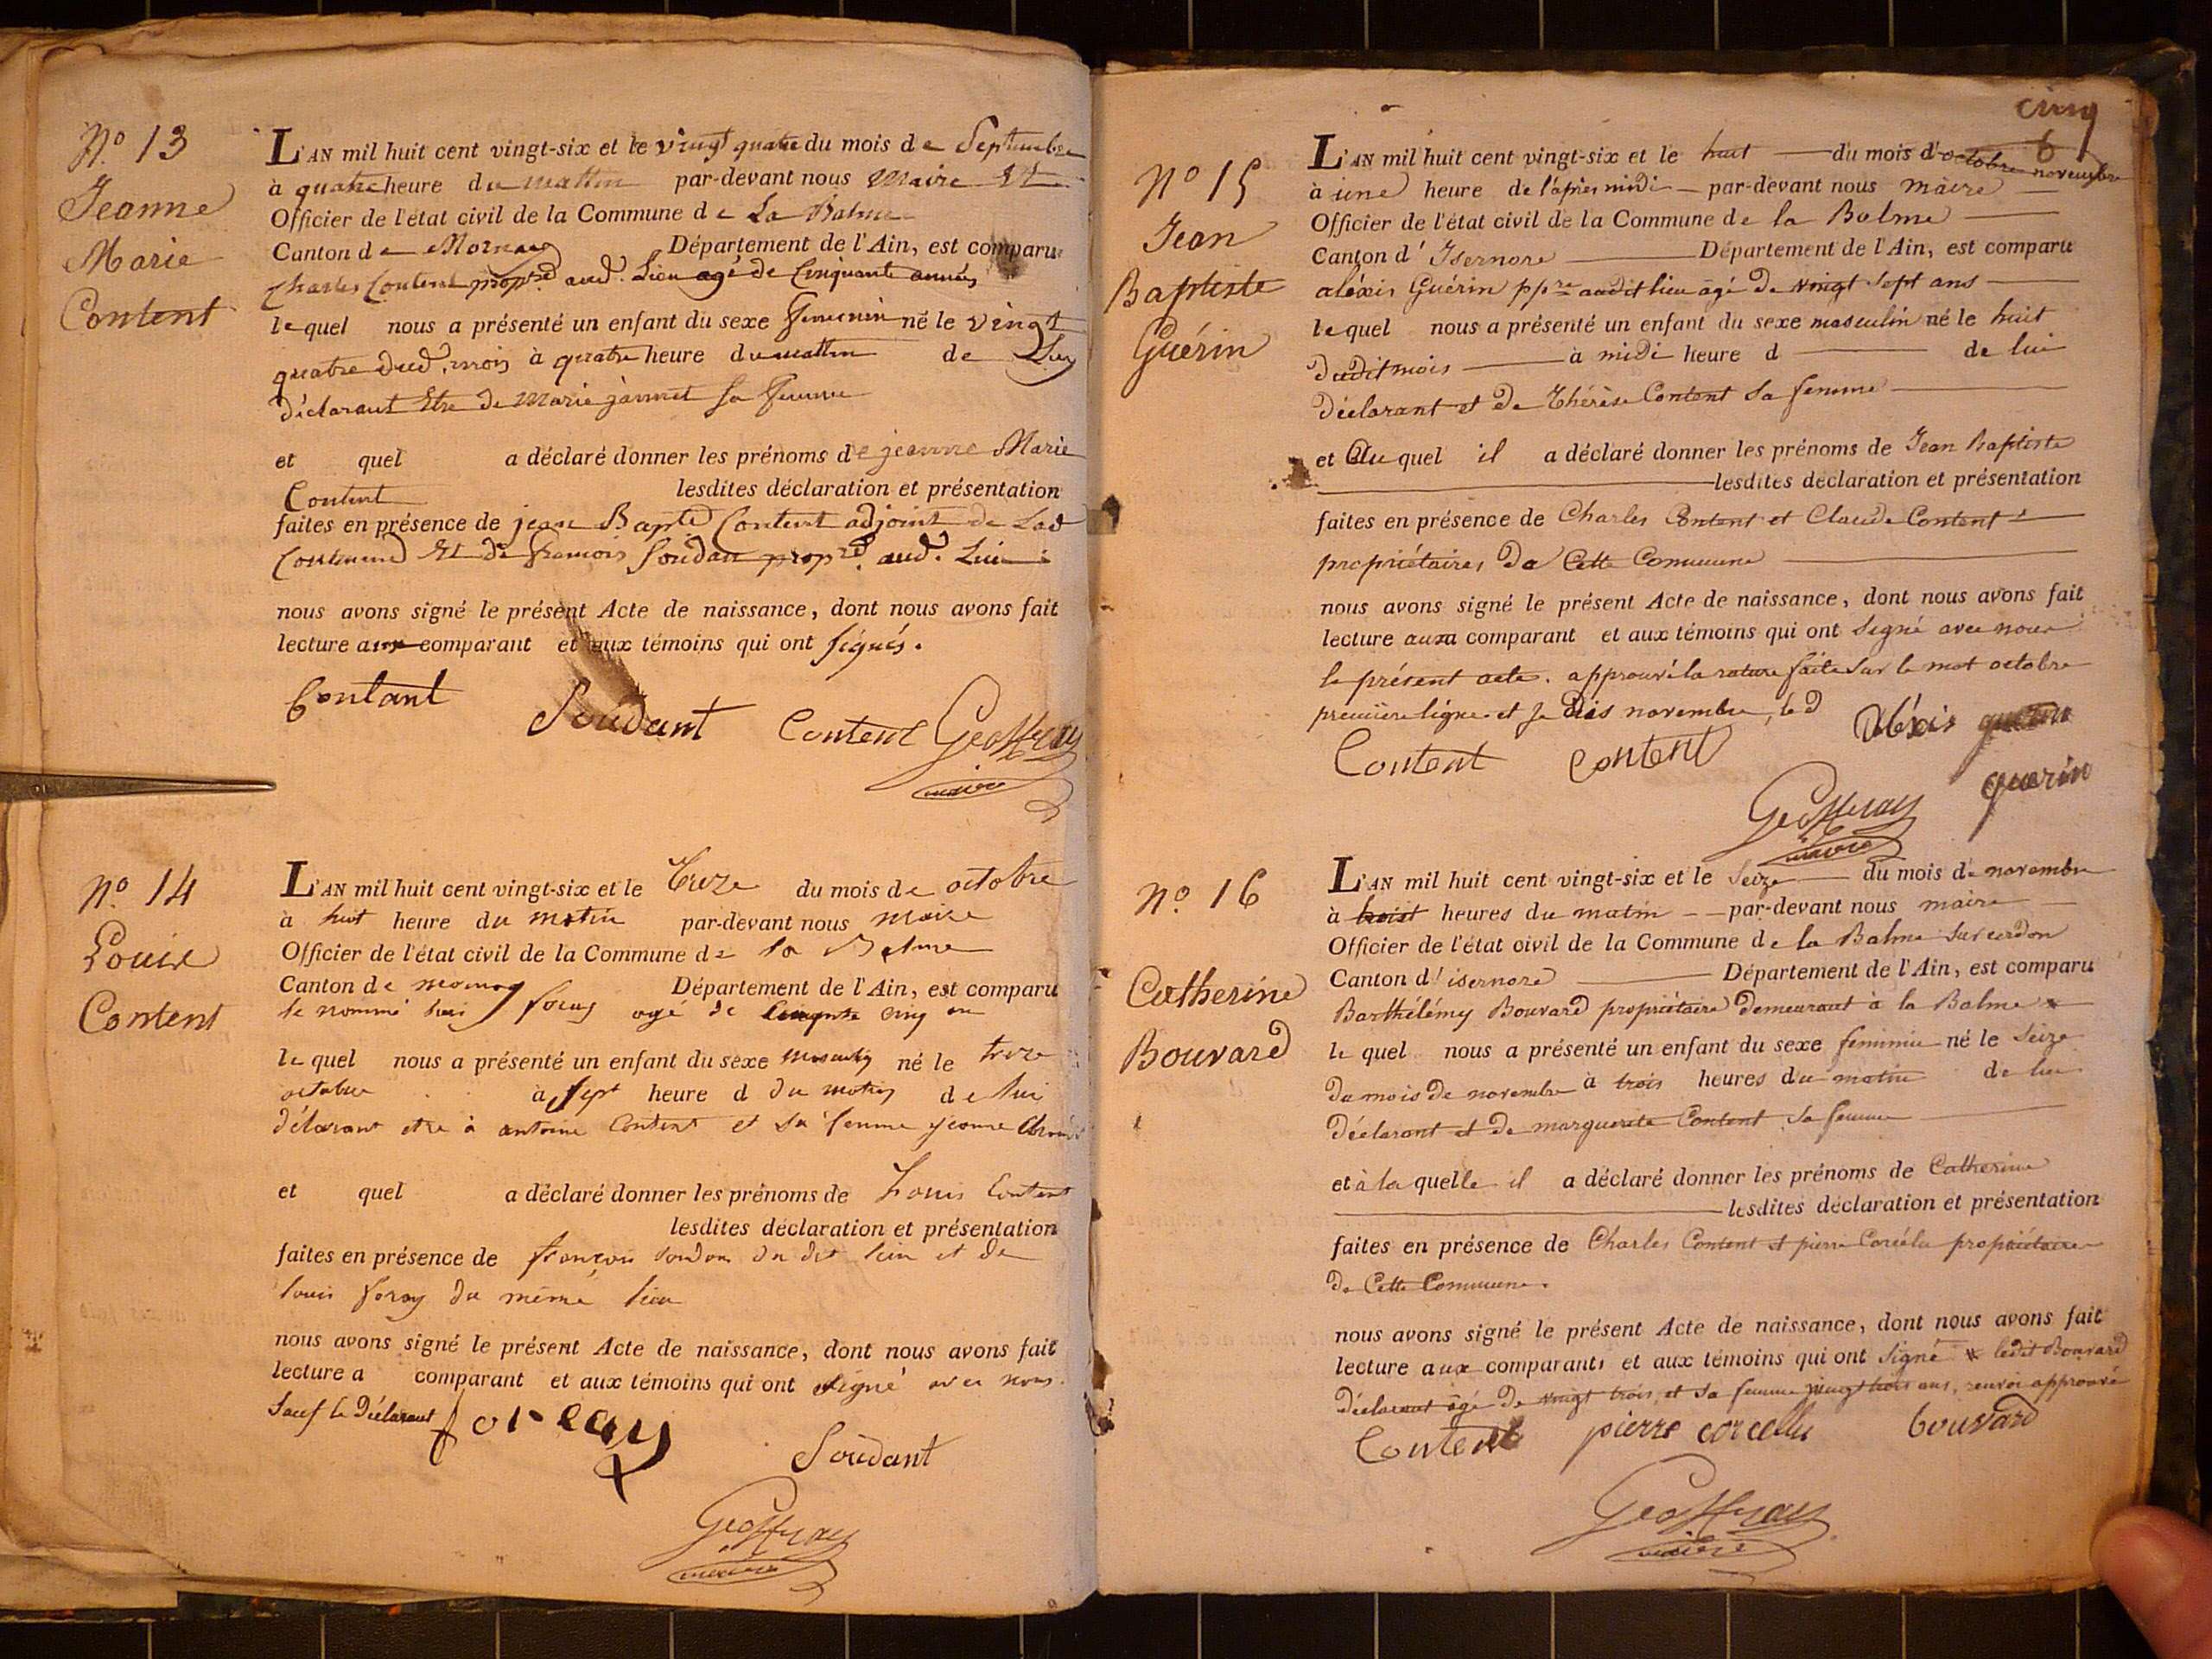 N.º 13
Jeanne
Marie
Content
L'AN mil huit cent vingt-six et le vingt quatre du mois de Septembre
à quatre heure du mattin par-devant nous Maire Et
Officier de l'état civil de la Commune de La Balme
Canton de Mornay Département de l'Ain, est comparu
Charles Content propre aud. Lieu agé de Cinquante années
lequel nous a présenté un enfant du sexe femenin né le vingt
quatre dud. mois à quatre heure du mattin de Luy
déclarant Etre de Marie jannet sa femme
et quel a déclaré donner les prénoms de jeanne Marie
Content lesdites déclaration et présentation
faites en présence de jean Bapte Content adjoint de Lad
Commune Et de francois Soudan propre aud. Lieu
nous avons signé le présent Acte de naissance, dont nous avons fait
lecture aux comparant et aux témoins qui ont signés.
Contant Soudant Content Geoffray
maire
N.º 14
Louis
Content
L'AN mil huit cent vingt-six et le treze du mois de octobre
à huit heure du matin par-devant nous maire
Officier de l'état civil de la Commune de la Balme
Canton de mornay Département de l'Ain, est comparu
le nommé agé de cinq an
lequel nous a présenté un enfant du sexe masculin né le treze
octobre à sept heure d du matin de lui
déclarant etre à antoine Content et sa femme jeanne
et quel a déclaré donner les prénoms de Louis Content
lesdites déclaration et présentation
faites en présence de françois soudan du dit lieu et de
louis foray du même lieu
nous avons signé le présent Acte de naissance, dont nous avons fait
lecture a comparant et aux témoins qui ont signé avec nous
Sauf le Déclarant foray
Soudant
Geoffray
maire
cinq
6
Nº 15
Jean
Baptiste
Guérin
L'AN mil huit cent vingt-six et le huit du mois d'octobre novembre
à une heure de l'après midi par-devant nous maire
Officier de l'état civil de la Commune de la Balme
Canton d'Isernore Département de l'Ain, est comparu
aléxis Guérin ppre audit lieu agé de vingt sept ans
lequel nous a présenté un enfant du sexe masculin né le huit
dudit mois à midi heure d de lui
déclarant et de Thérèse Content sa femme
et Auquel il a déclaré donner les prénoms de Jean Baptiste
lesdites déclaration et présentation
faites en présence de Charles Content et Claude Content
propriétaires de Cette Commune
nous avons signé le présent Acte de naissance, dont nous avons fait
lecture au comparant et aux témoins qui ont signé avec nous
le présent acte. approuvé la rature faite sur le mot octobre
première ligne et je dis novembre, led
Aléxis guerin
Content Content
guerin
Geoffray
maire
N.º 16
Catherine
Bouvard
L'AN mil huit cent vingt-six et le seize du mois de novembre
à heures du matin par-devant nous maire
Officier de l'état civil de la Commune de la Balme sur cerdon
Canton d'isernore Département de l'Ain, est comparu
Barthélémy Bouvard propriétaire demeurant à la Balme *
lequel nous a présenté un enfant du sexe feminin né le seize
du mois de novembre à trois heures du matin de lui
Déclarant et de marguerite Content sa femme
et à laquelle il a déclaré donner les prénoms de Catherine
lesdites déclaration et présentation
faites en présence de Charles Content et pierre Corcélu propriétaires
de Cette Commune.
nous avons signé le présent Acte de naissance, dont nous avons fait
lecture aux comparants et aux témoins qui ont signé * ledit Bouvard
déclarant âgé de vingt trois, et sa femme vingt trois ans, renvoi approuvé
Content pierre corcellu bouvard
Geoffray
maire